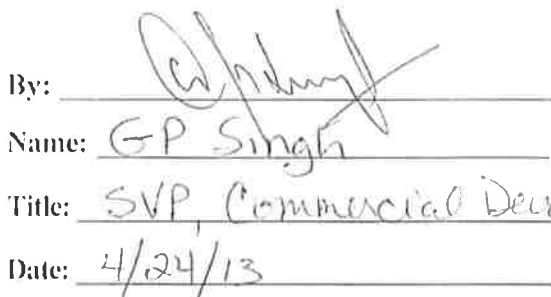 By:
Name: GP Singh
Title: SVP, Commercial
Date: 4/24/13